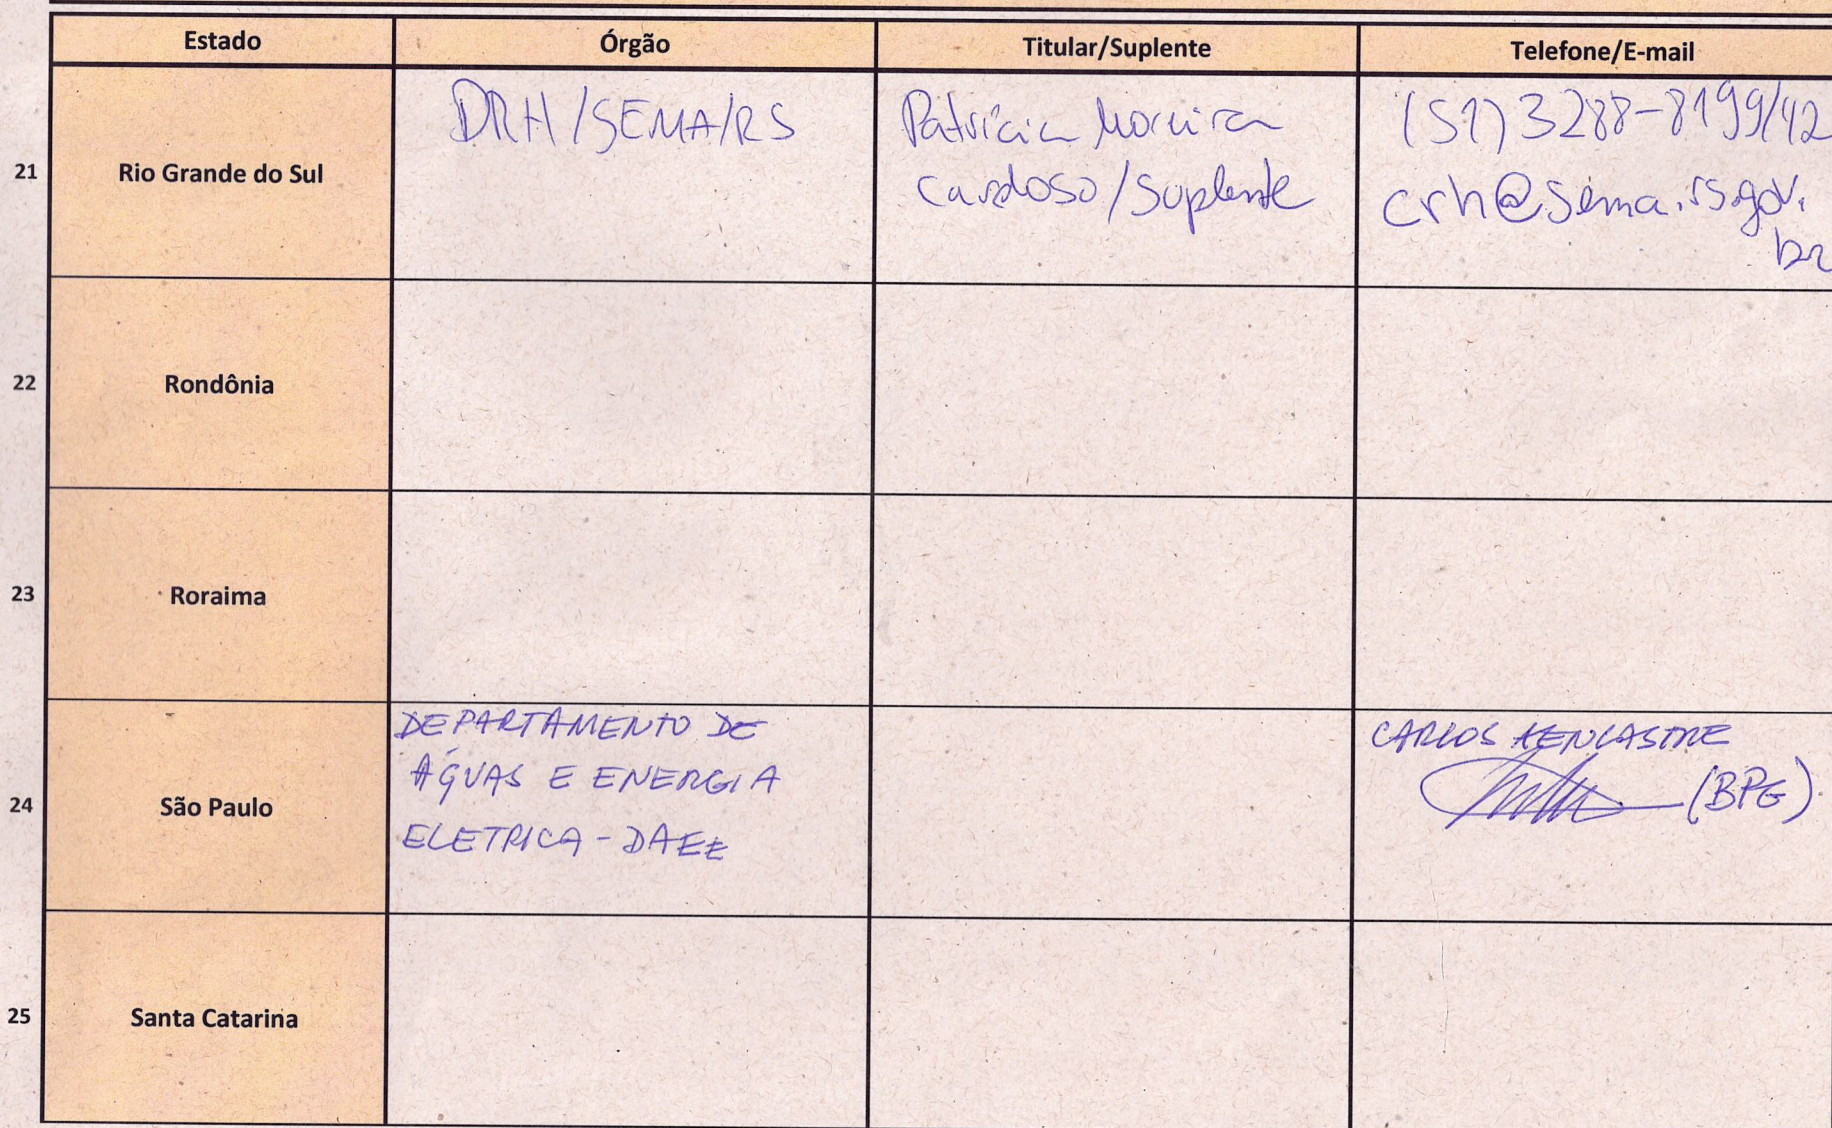 Estado Órgão Titular/Suplente Telefone/E-mail
21 Rio Grande do Sul
DRH/SEMA/RS
Patrícia Moreira
Cardoso/Suplente
(51) 3288-8199/42
crh@sema.rs.gov.
br
22 Rondônia
23 Roraima
24 São Paulo
DEPARTAMENTO DE
ÁGUAS E ENERGIA
ELETRICA - DAEE
CARLOS LENCASTRE
(BPG)
25 Santa Catarina